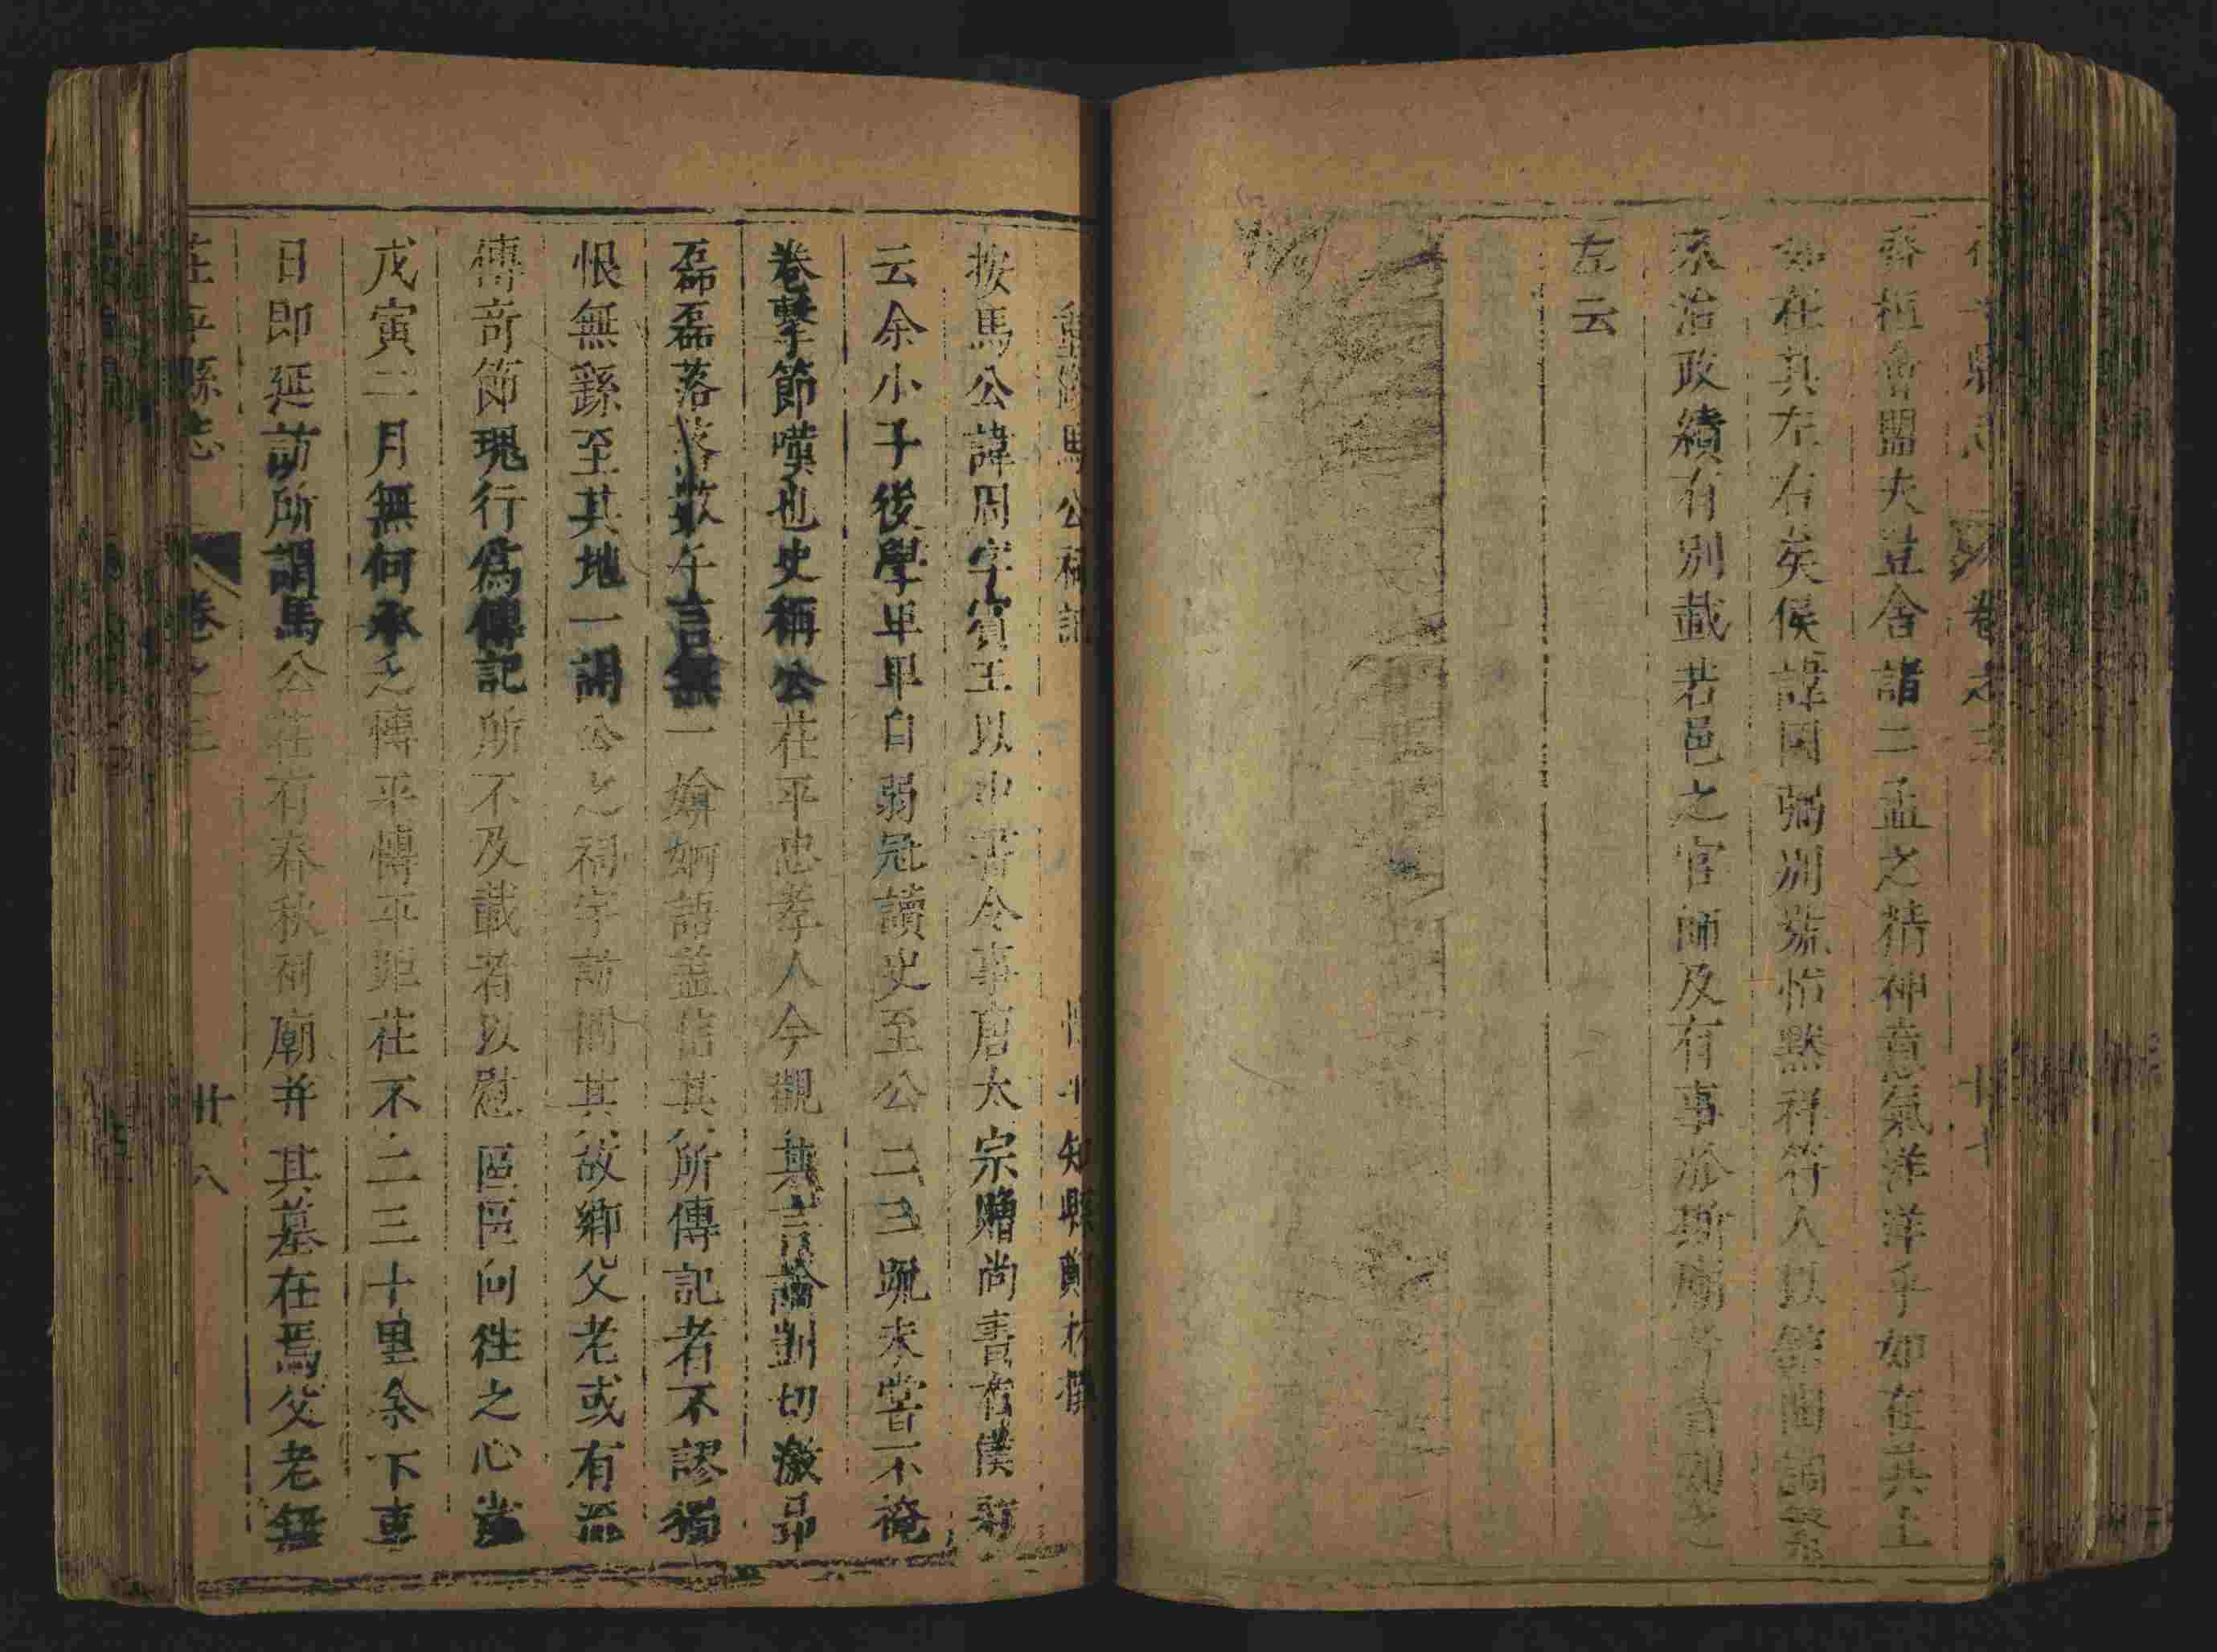 茌平縣志 卷之三
齊桓會盟夫豈舍諸二孟之精神意氣洋洋乎如在其上
如在其左右矣侯諱國弼別號恬默祥符人以
治政績有別載若邑之官師及有事於斯廟者
左云
重修馬公祠記 知縣
按馬公諱周字賓王以中書令事唐太宗贈尚書右僕射
云余小子後學早早自弱冠讀史至公二三疏未嘗不掩
卷擊節嘆也史稱公茌平忠孝人今觀其言論剴切激昂
磊磊落落數千言無一媕婀語蓋信其所傳記者不謬獨
恨無繇至其地一謁公之祠宇訪問其故鄉父老或有流
傳奇節瑰行為傳記所不及載者以慰區區向往之心歲
戊寅二月無何承乏博平博平距茌不二三十里余下車
日即延訪所謂馬公茌有春秋祠廟并其墓在焉父老無
茌平縣志 卷之三 廿八